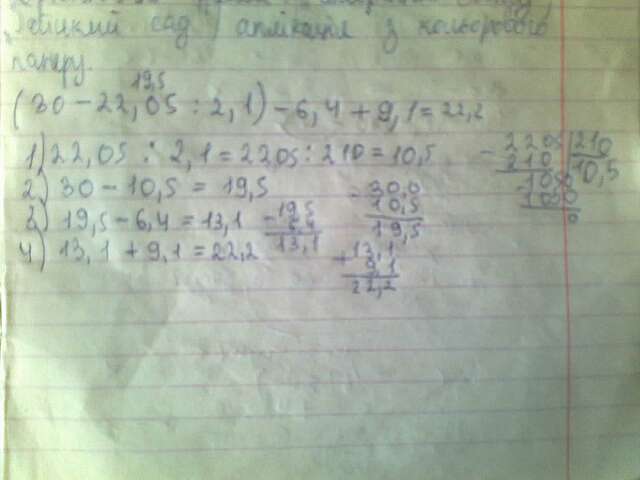 сад, аплікація з кольорового
паперу.
19,5
(30 - 22,05 : 2,1) - 6,4 + 9,1 = 22,2
1) 22,05 : 2,1 = 2205 : 210 = 10,5
2) 30 - 10,5 = 19,5
3) 19,5 - 6,4 = 13,1
4) 13,1 + 9,1 = 22,2
- 2205 | 210
210 | 10,5
- 1050
1050
0
- 30,0
10,5
19,5
- 19,5
6,4
13,1
+ 13,1
9,1
22,2